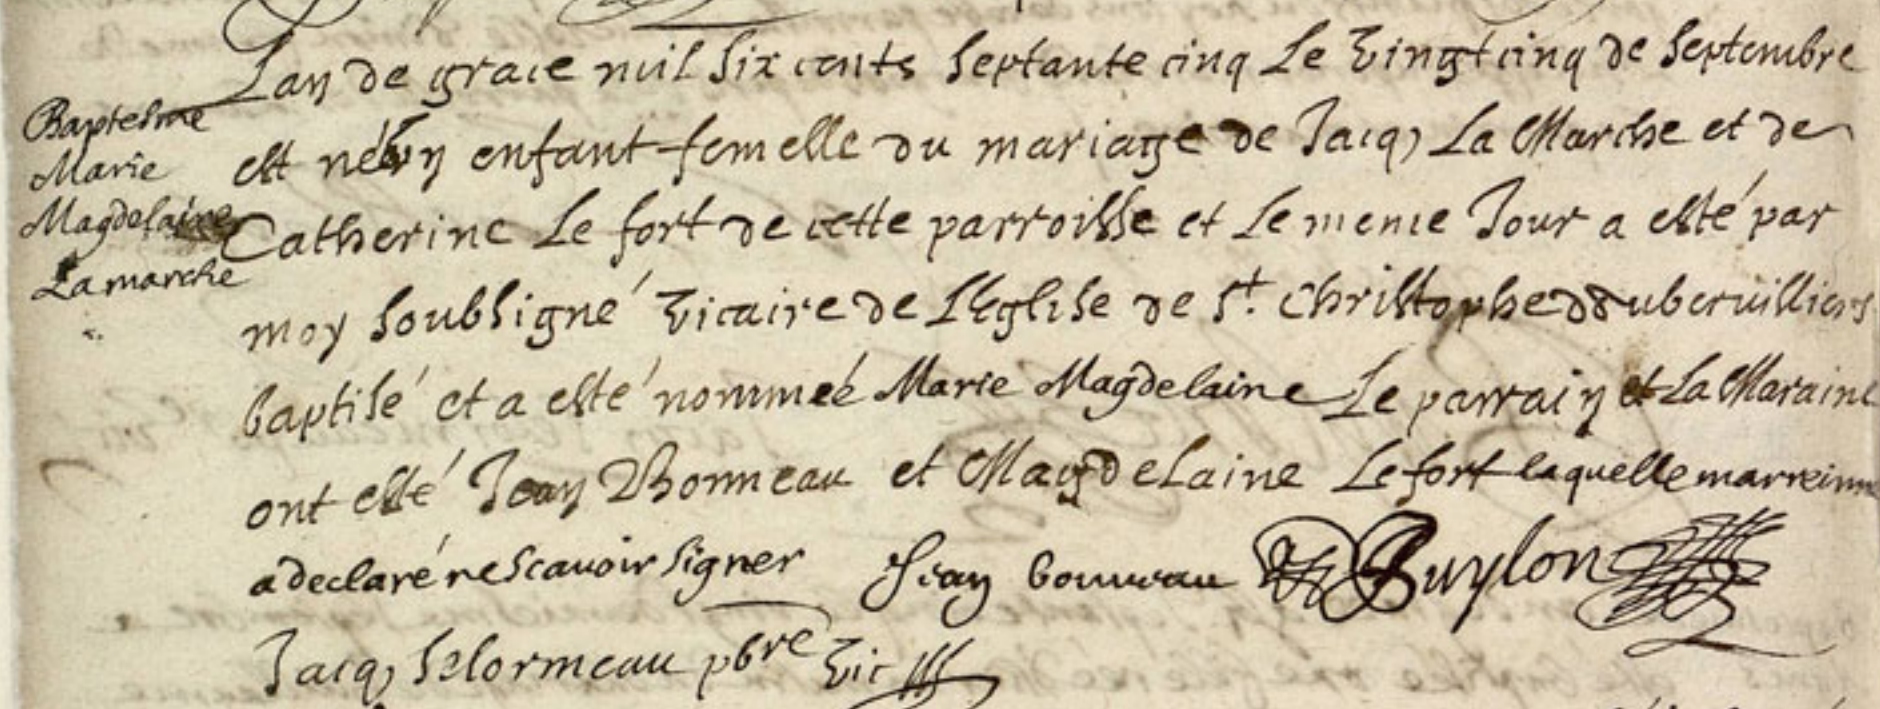 Baptesme
Marie
Magdelaine
Lamarche
Lan de grace mil six cents septante cinq le vingt cinq de septembre
est né vn enfant femelle du mariage de Jacq, La Marche et de
Catherine Le fort de cette parroisse et le meme Jour a esté par
moy soubsigné vicaire de LEglise de St. Christophe dauberuilliers
baptisé et a esté nommeé Marie Magdelaine Le parrain et La Maraine
ont esté Jean Bonneau et Magdelaine Lefort laquelle marreinne
a declaré ne scauoir signer Jean bonneau
Jacq, pbre vic